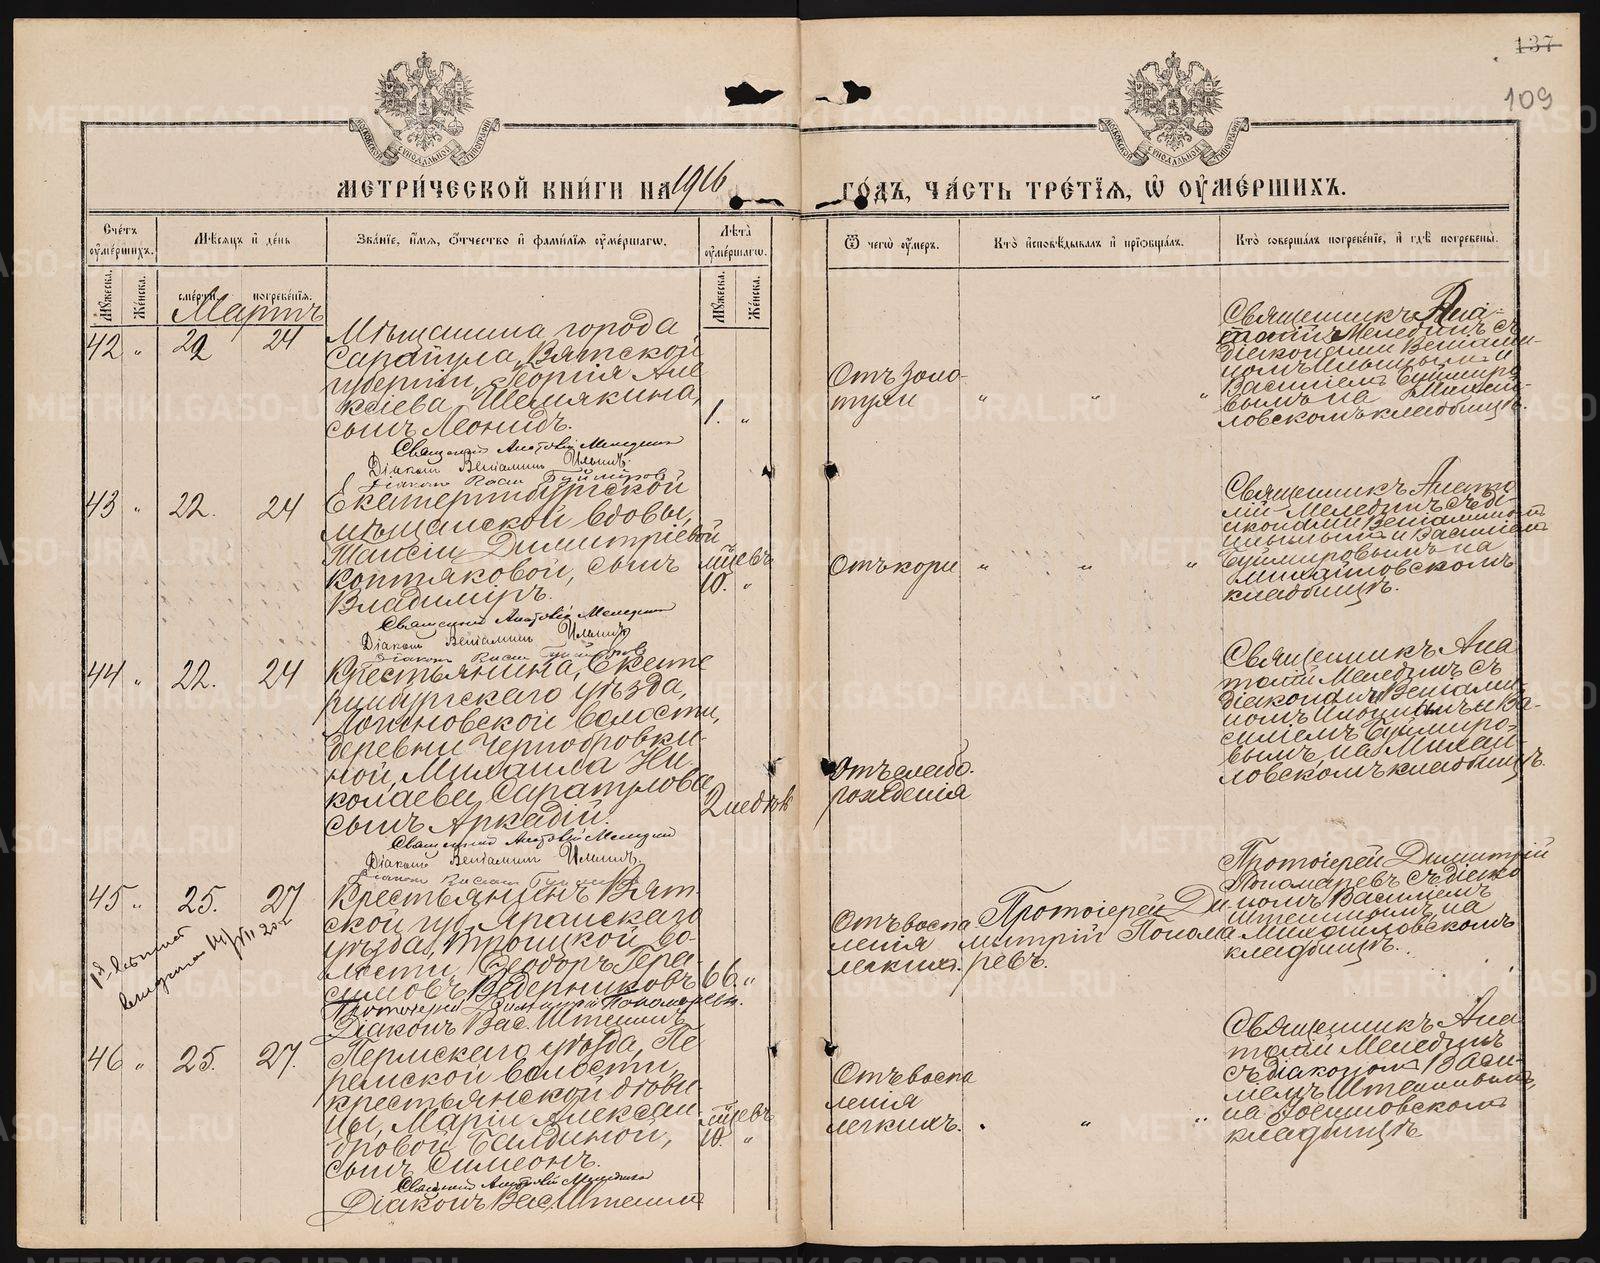 137
109
МЕТРИ́ЧЕСКОЙ КНИ́ГИ НА 1916
ГО́ДЪ, ЧА́СТЬ ТРЕ́ТЇѦ, Ѡ҆ ОУ҆МЕ́РШИХЪ.
Сче́тъ оу҆ме́ршихъ.
Мѣ́сяцъ и҆ де́нь
Зва́нїе, и҆́мѧ, ѻ҆́тчество и҆ фами́лїѧ оу҆ме́ршагѡ.
Лѣ́та оу҆ме́ршагѡ.
Ѿ чегѡ̀ оу҆́меръ.
Кто̀ и҆сповѣ́дывалъ и҆ прїѡбща́лъ.
Кто̀ соверша́лъ погребе́нїе, и҆ гдѣ̀ погребены̀.
Мꙋ́жеска.
Же́нска.
сме́рти.
погребе́нїѧ.
Мꙋ́жеска.
Же́нска.
Мартъ
42 " 22 24
Мѣщанина города
Сарапула, Вятской
губерніи, Георгія Але
ксіева Шемякина,
сынъ Леонидъ.
1. "
Священникъ Анатолій Мелединъ
Діаконъ Веніаминъ Ильинъ
Діаконъ Васил Буймировъ
Отъ золо-
тухи " " "
Священникъ Ана-
толій Мелединъ съ
діаконами Веніами-
номъ Ильинымъ и
Василіемъ Буймиро
вымъ на Михай-
ловскомъ кладбищѣ.
43 " 22. 24
Екатеринбургской
мѣщанской вдовы,
Таисіи Димитріевой
Коптяковой, сынъ
Владиміръ.
мѣцевъ
10. "
Священникъ Анатолій Меледин
Діаконъ Веніаминъ Ильинъ
Діаконъ Васил Буймировъ
Отъ кори " " "
Священникъ Анато
лій Мелединъ съ ді-
аконами Веніаминомъ
Ильинымъ и Василіемъ
Буймировымъ на
Михайловскомъ
кладбищѣ.
44 " 22. 24
Крестьянина, Екате
ринбургскаго уѣзда,
Логиновской волости,
деревни Чернобровки-
ной, Михаила Ни-
колаева Саратулова
сынъ Аркадій.
2 недѣль
Священникъ Анатолій Меледин
Діаконъ Веніаминъ Ильинъ
Діаконъ Васил Буймировъ
Отъ слабо.
рожденія
Священникъ Ана
толій Мелединъ съ
діаконами Веніами-
номъ Ильинымъ и Ва-
силіемъ Буймиро-
вымъ, на Михай-
ловскомъ кладбищѣ.
45 " 25. 27
Крестьянинъ Вят-
ской губ. Яранскаго
уѣзда, Троицкой во-
лости, Ѳеодоръ Гера-
симовъ Ведерниковъ
66. "
Протоіерей Димитрій Пономаревъ.
Діаконъ Вас. Штешинъ
Отъ воспа
ленія
легкихъ.
Протоіерей Ди
митрій Понома
ревъ.
Протоіерей Димитрій
Пономаревъ съ діако
номъ Василіемъ
Штешинымъ, на
Михайловскомъ
кладбищѣ.
46 " 25. 27.
Пермскаго уѣзда, Пе
ремской волости,
крестьянской дѣви-
цы, Маріи Алексан-
дровой Балдиной,
сынъ Симеонъ.
мѣцевъ
10. "
Священникъ Анатолій Меледин
Діаконъ Вас. Штешинъ
Отъ воспа
ленія
легкихъ. " " "
Священникъ Ана
толій Мелединъ
съ діакономъ Васи-
ліемъ Штешинымъ
на
кладбищѣ